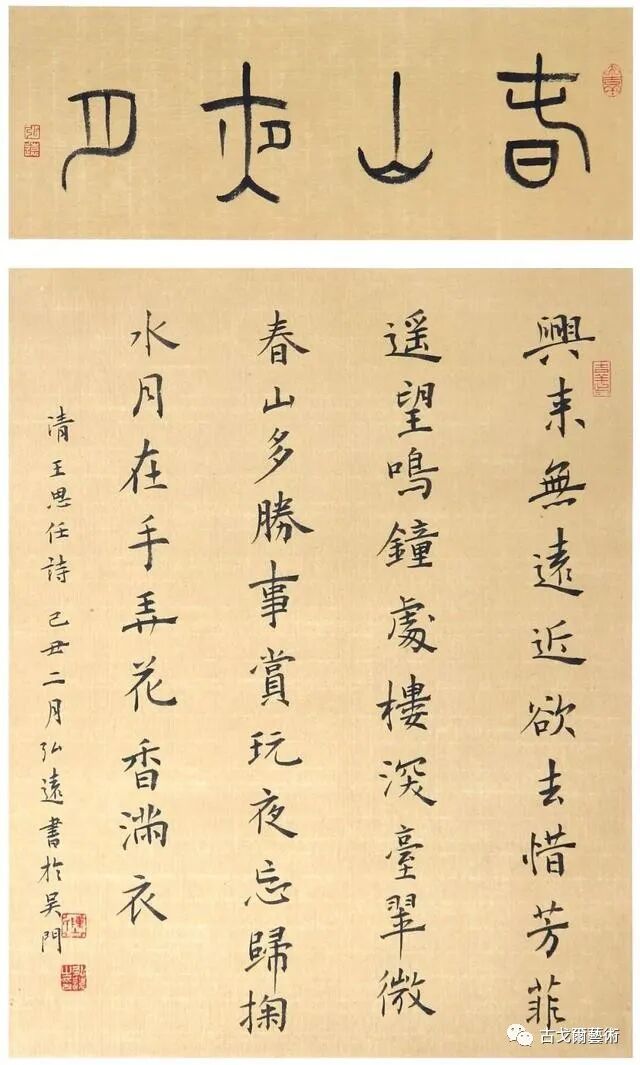 春山夜月
興来無遠近欲去惜芳菲
遥望鳴鐘處樓深臺翠微
春山多勝事賞玩夜忘歸掬
水月在手弄花香滿衣
清王思任詩己丑二月弘遠書於吳門
古戈爾藝術